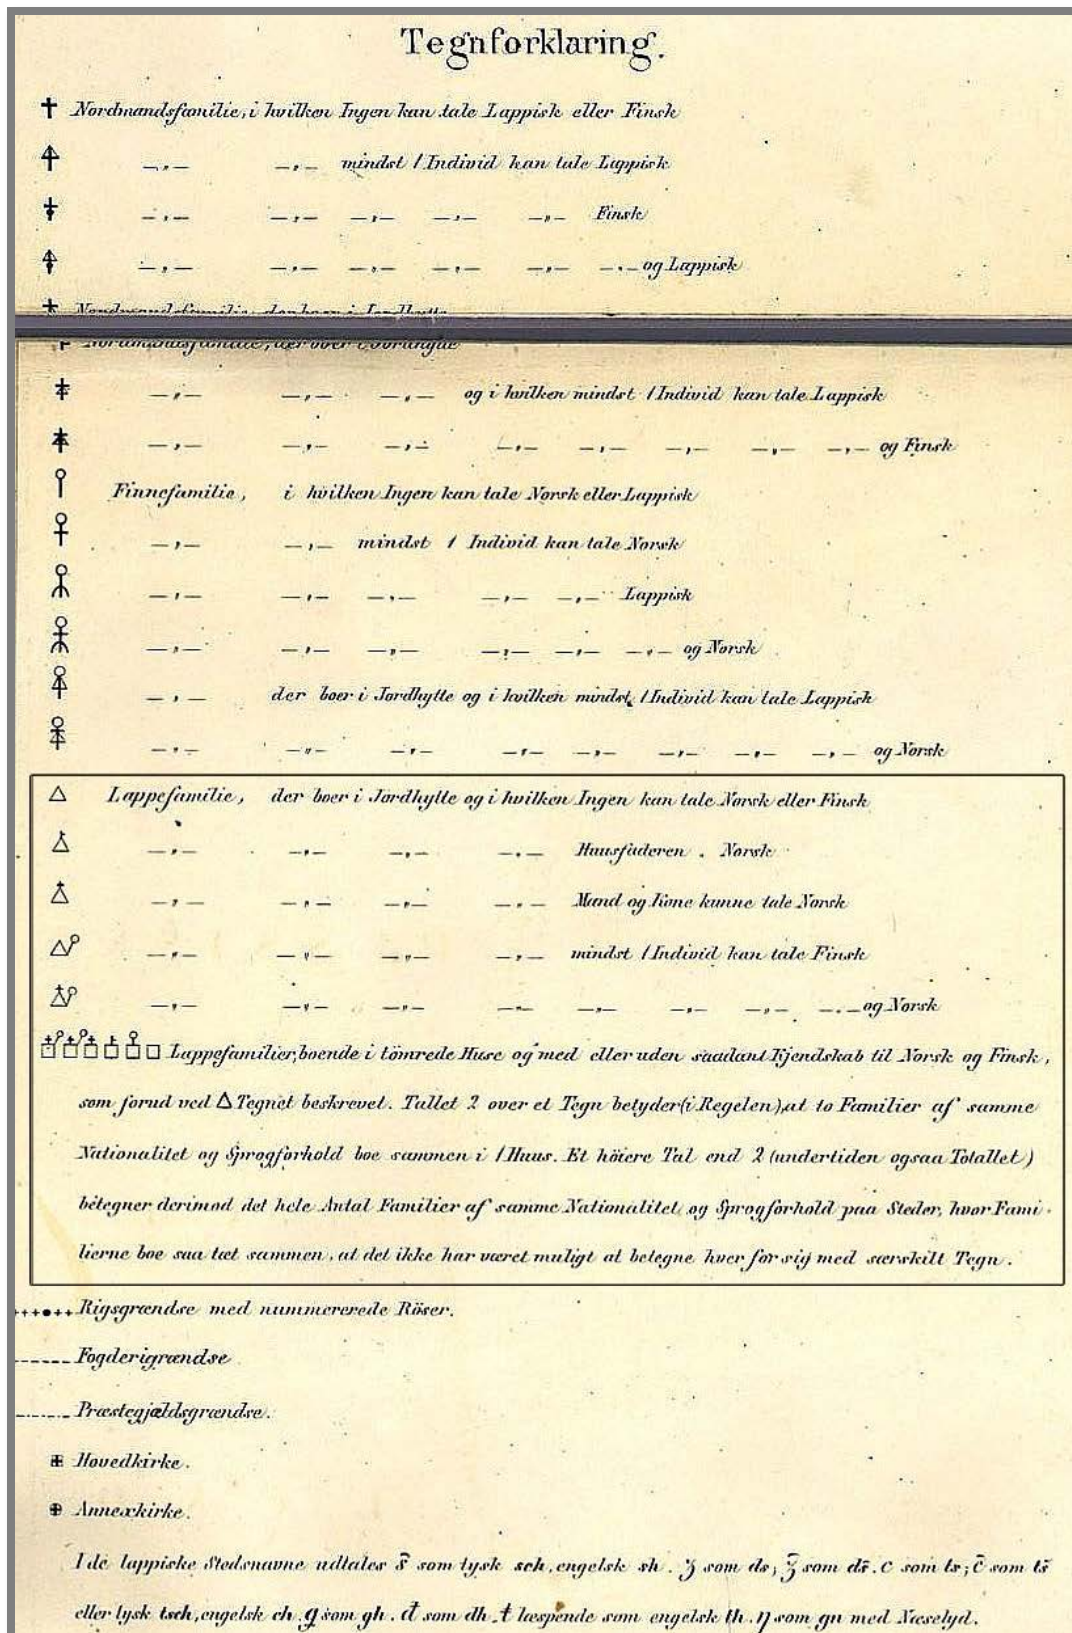 Tegnforklaring.
Nordmandsfamilie, i hvilken Ingen kan tale Lappisk eller Finsk
—„— —„— mindst 1 Individ kan tale Lappisk
—„— —„— —„— —„— —„— Finsk
—„— —„— —„— —„— —„— —„— og Lappisk
Nordmandsfamilie, der boer i Jordhytte
Nordmandsfamilie, der boer i Jordhytte
—„— —„— —„— og i hvilken mindst 1 Individ kan tale Lappisk
—„— —„— —„— —„— —„— —„— —„— —„— og Finsk
Finnefamilie, i hvilken Ingen kan tale Norsk eller Lappisk
—„— —„— mindst 1 Individ kan tale Norsk
—„— —„— —„— —„— —„— Lappisk
—„— —„— —„— —„— —„— —„— og Norsk
—„— der boer i Jordhytte og i hvilken mindst 1 Individ kan tale Lappisk
—„— —„— —„— —„— —„— —„— —„— —„— og Norsk
△ Lappefamilie, der boer i Jordhytte og i hvilken Ingen kan tale Norsk eller Finsk
—„— —„— —„— —„— Huusfaderen „ Norsk
—„— —„— —„— —„— Mand og Kone kunne tale Norsk
—„— —„— —„— —„— mindst 1 Individ kan tale Finsk
—„— —„— —„— —„— —„— —„— —„— —„— og Norsk
Lappefamilier, boende i tömrede Huse og med eller uden saadant Kjendskab til Norsk og Finsk,
som forud ved △ Tegnet beskrevet. Tallet 2 over et Tegn betyder (i Regelen), at to Familier af samme
Nationalitet og Sprogforhold boe sammen i 1 Huus. Et höiere Tal end 2 (undertiden ogsaa Totallet)
betegner derimod det hele Antal Familier af samme Nationalitet og Sprogforhold paa Steder, hvor Fami-
lierne boe saa tæt sammen, at det ikke har været muligt at betegne hver for sig med særskilt Tegn.
Rigsgrændse med nummererede Röser.
Fogderigrændse
Præstegjældsgrændse.
Hovedkirke.
Annexkirke.
I de lappiske Stedsnavne udtales s̄ som tysk sch, engelsk sh. ʒ som ds; ʒ̄ som ds̄. c som ts; c̄ som ts̄
eller tysk tsch, engelsk ch. ǥ som gh. đ som dh. ŧ læspende som engelsk th. ŋ som gn med Næselyd.